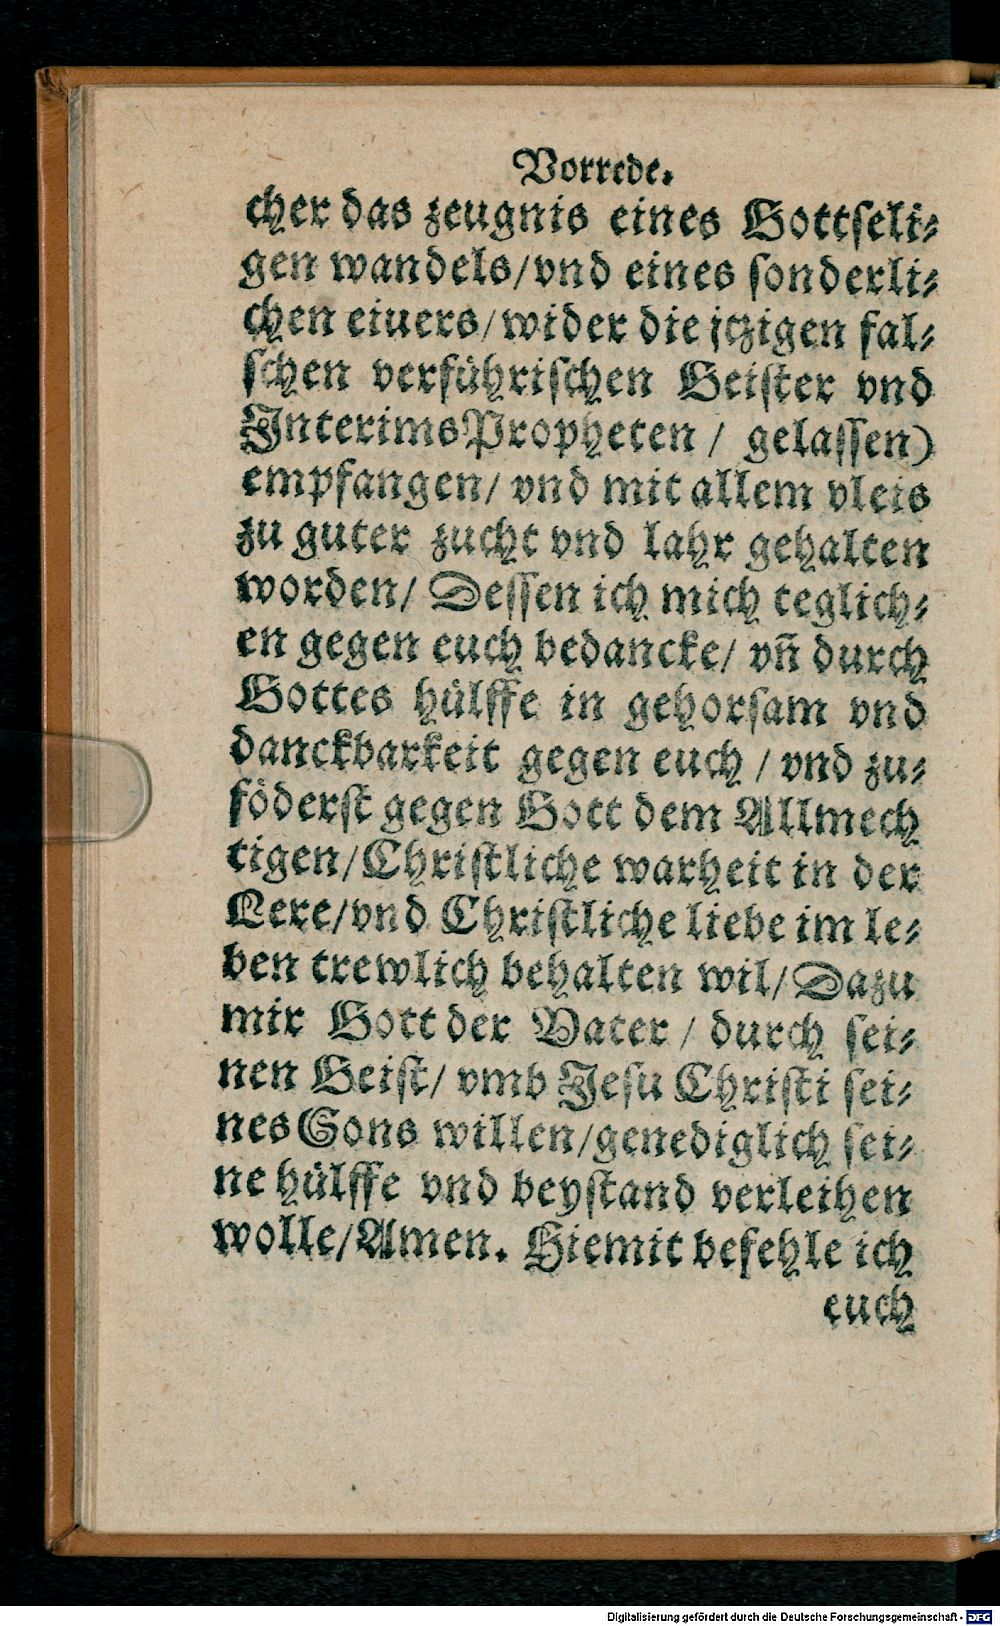 Vorrede.
cher das zeugnis eines Gottseli⸗
gen wandels/vnd eines sonderli⸗
chen eiuers/wider die jtzigen fal⸗
schen verführischen Geister vnd
InterimsPropheten / gelassen)
empfangen/ vnd mit allem vleis
zu guter zucht vnd lahr gehalten
worden/ Dessen ich mich teglich⸗
en gegen euch bedancke/ vn̄ durch
Gottes hülffe in gehorsam vnd
danckbarkeit gegen euch / vnd zu⸗
föderst gegen Gott dem Allmech
tigen/Christliche warheit in der
Lere/vnd Christliche liebe im le⸗
ben trewlich behalten wil/Dazu
mir Gott der Vater / durch sei⸗
nen Geist/ vmb Jesu Christi sei⸗
nes Sons willen/genediglich sei⸗
ne hülffe vnd beystand verleihen
wolle/Amen. Hiemit befehle ich
euch
Digitalisierung gefördert durch die Deutsche Forschungsgemeinschaft - DFG